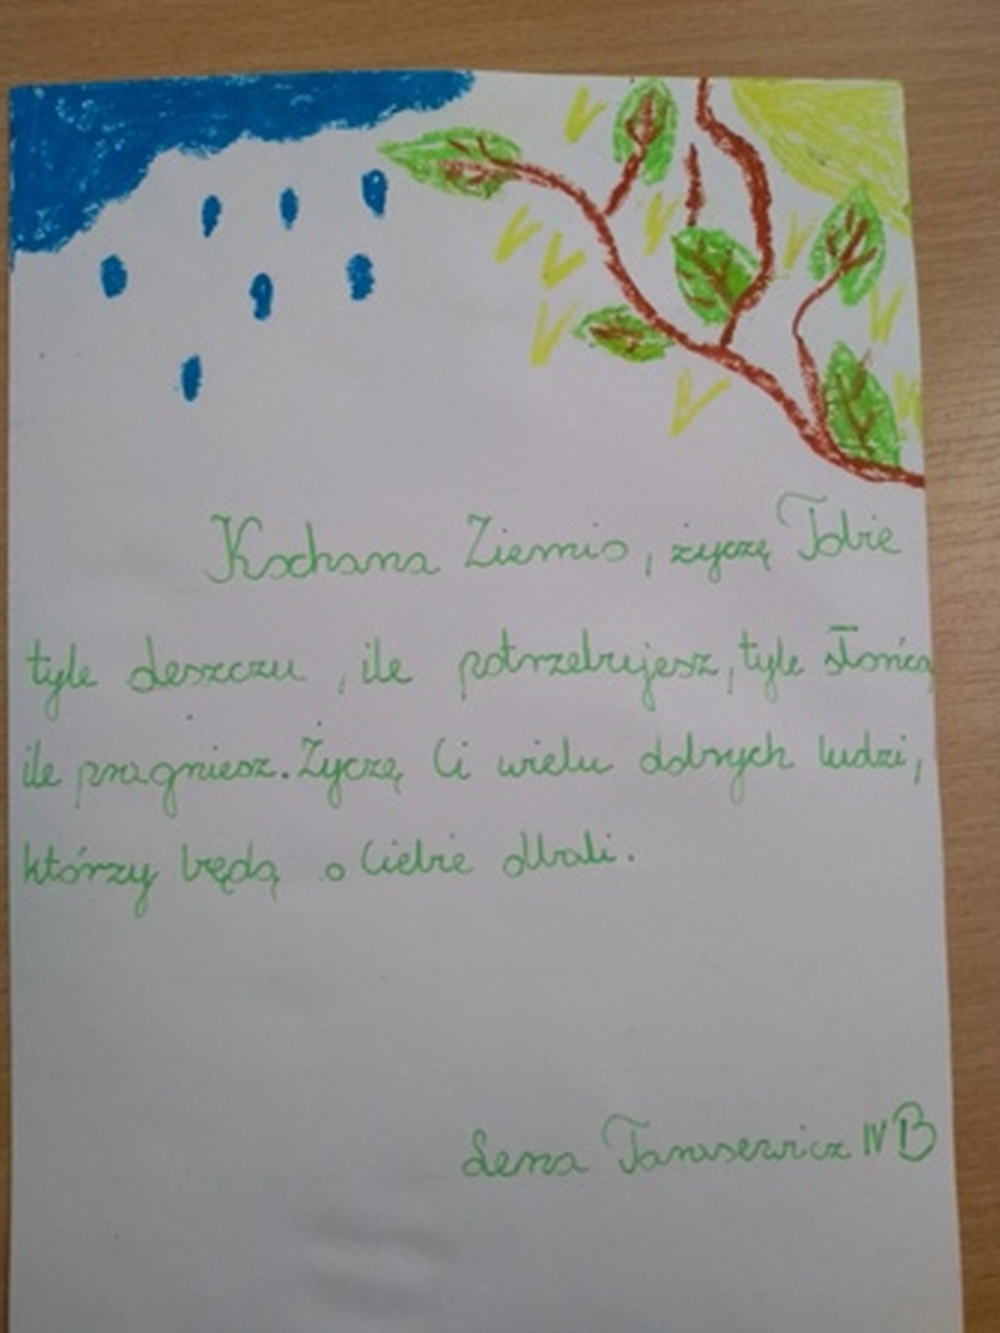 Kochana Ziemio, życzę Tobie
tyle deszczu, ile potrzebujesz, tyle słońca
ile pragniesz. Życzę Ci wielu dobrych ludzi,
którzy będą o Ciebie dbali.
Lena Tarasewicz IV B